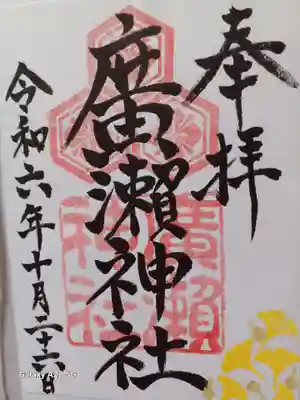 奉拝
廣瀬神社
令和六年十月二十六日
廣瀬
神社